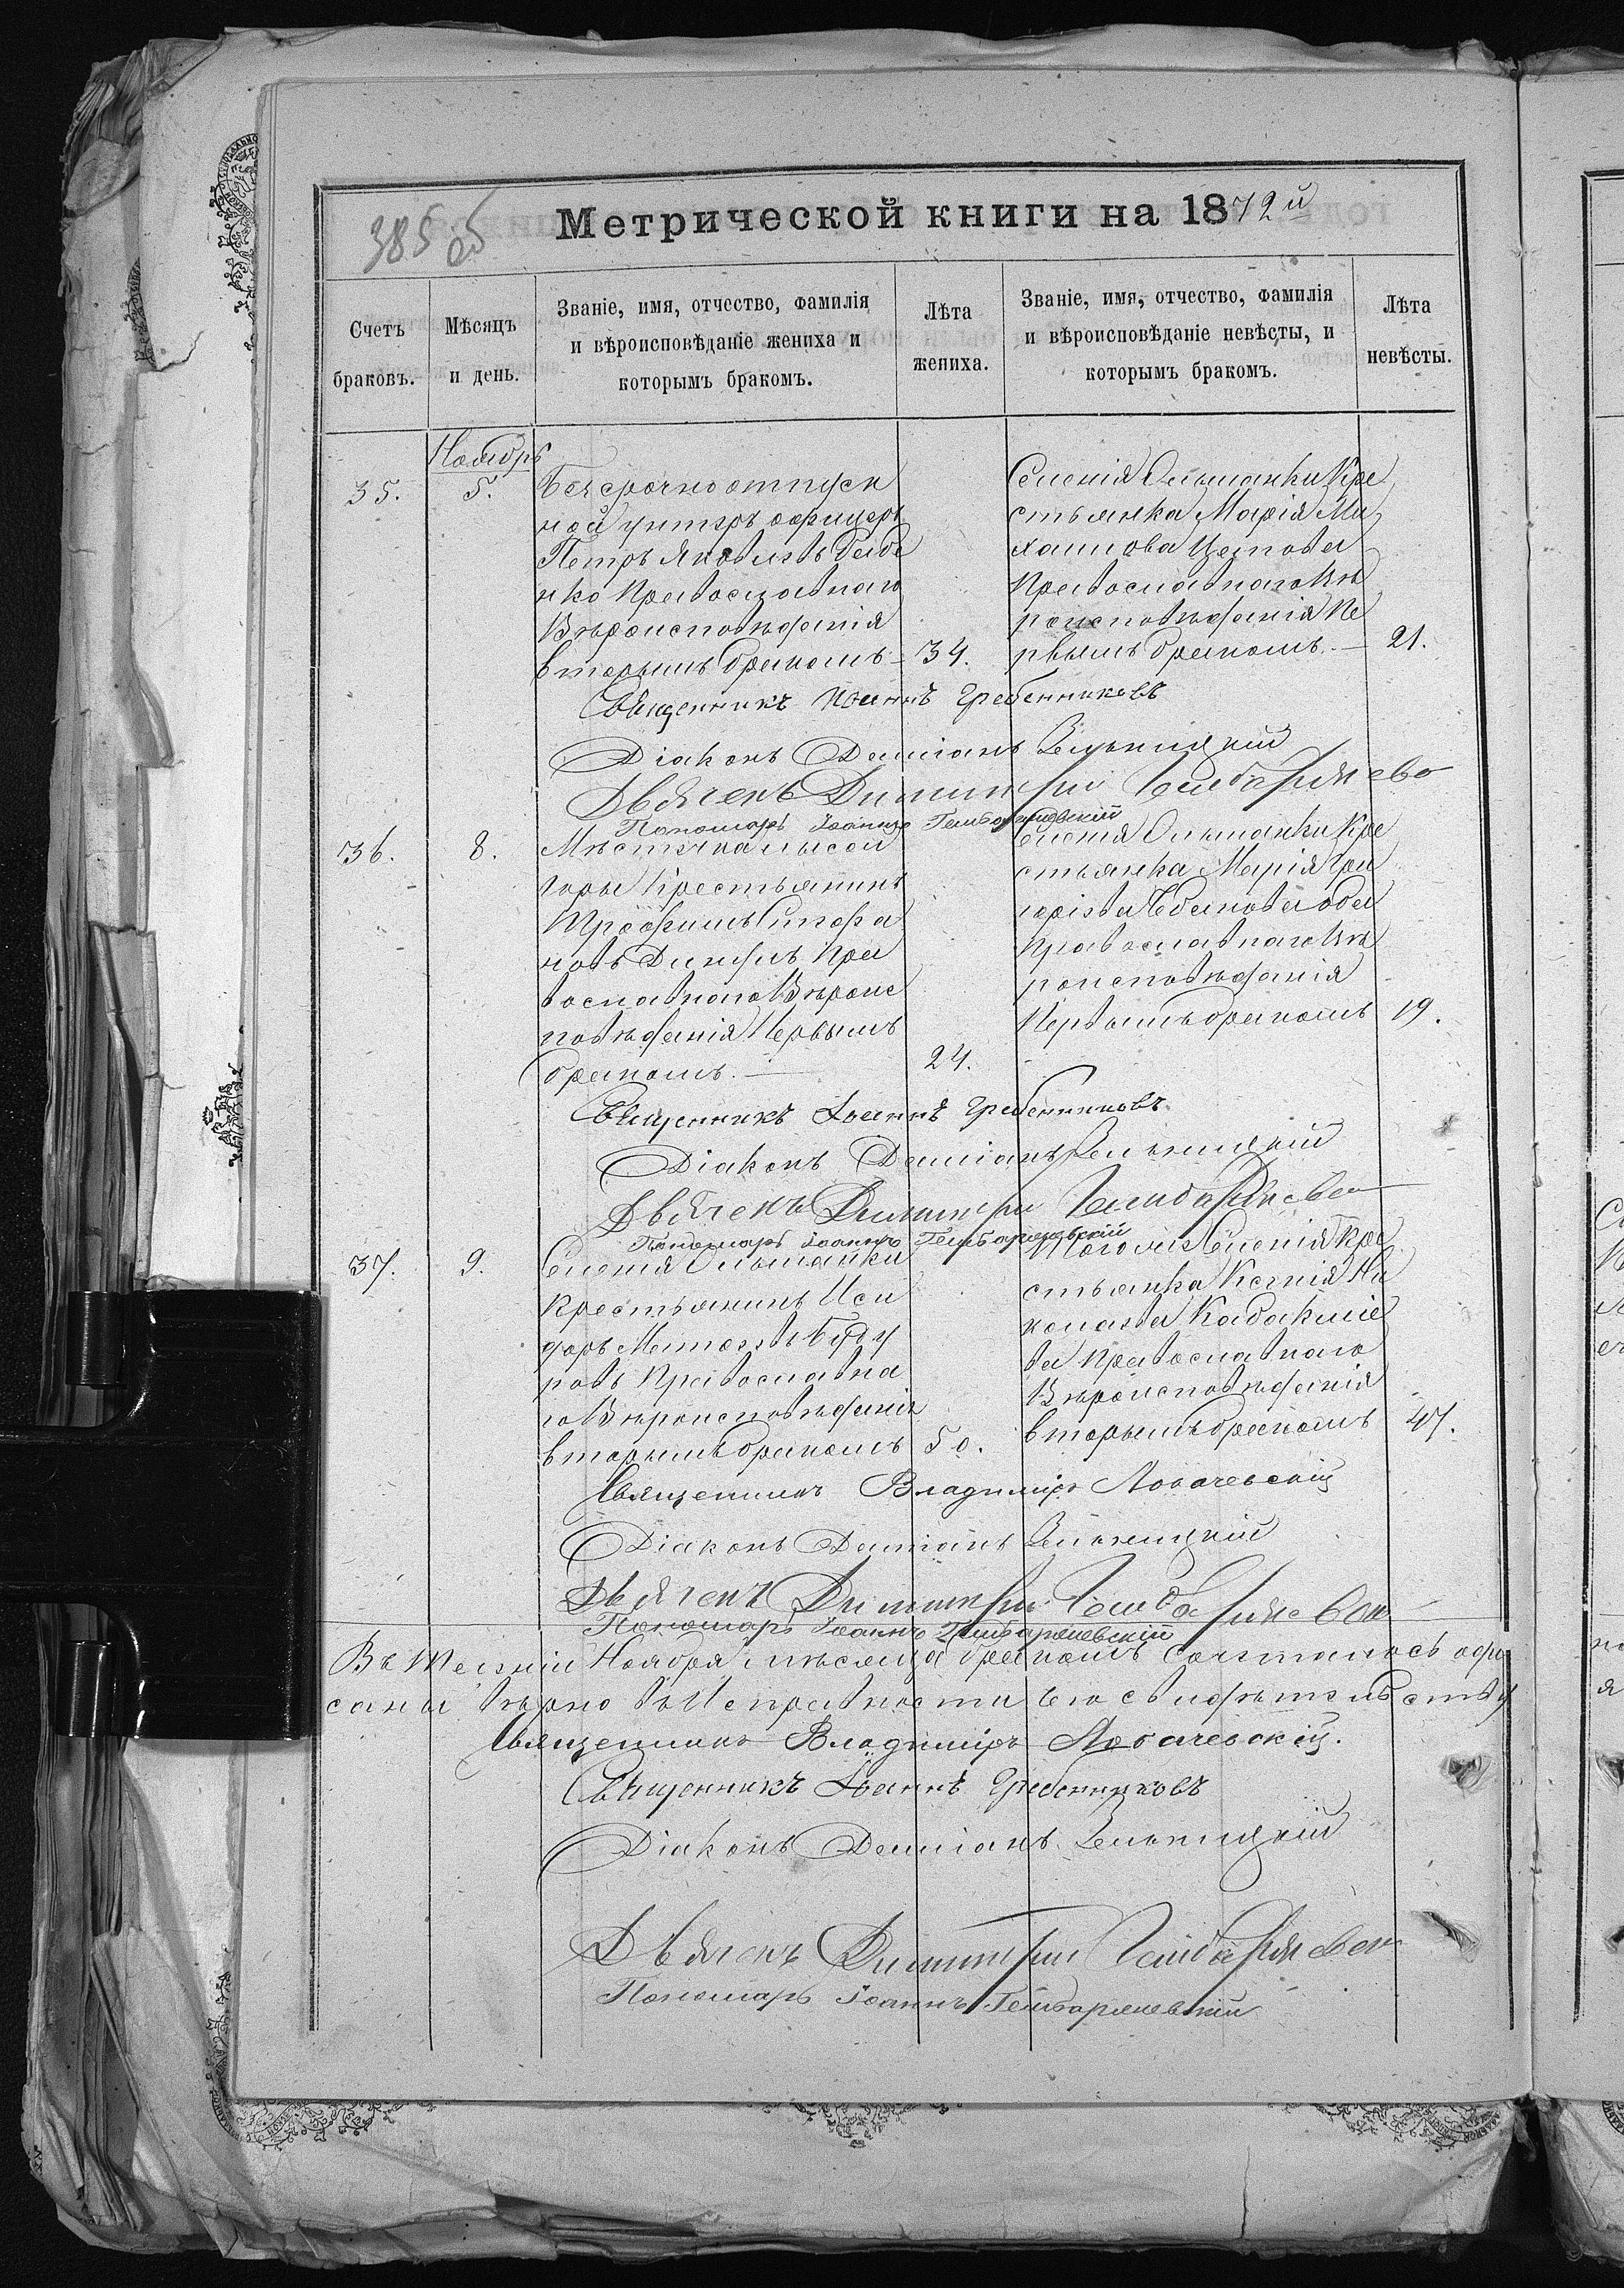 385 об
Метрической книги на 1872й
Счетъ браковъ.
Мѣсяцъ и день.
Званіе, имя, отчество, фамилія и вѣроисповѣданіе жениха и которымъ бракомъ.
Лѣта жениха.
Званіе, имя, отчество, фамилія и вѣроисповѣданіе невѣсты, и которымъ бракомъ.
Лѣта невѣсты.
Ноябрь
35.
5.
Безсрочно отпуск
ной унтеръ офицеръ
Петръ Яковлевъ
нко Православнаго
Вѣроисповѣданія
вторымъ бракомъ
34.
Селенія Ольшанки Кре
стьянка Марія Ми
хаилова
Православнаго Вѣ
роисповѣданія Пе
рвымъ бракомъ.
21.
Священникъ Іоаннъ Гребенниковъ
Діаконъ Даміанъ
Дьячекъ Димитрій
Пономарь Іоаннъ
36.
8.
Мѣстечка Лысой
горы Крестьянинъ
Трофимъ
Пра
вославнаго Вѣроис
повѣданія Первымъ
бракомъ.
24.
Селенія Ольшанки Кре
стьянка Марія Гри
горіева
Православнаго Вѣ
роисповѣданія
Первымъ бракомъ
19.
Священникъ Іоаннъ Гребенниковъ
Діаконъ Даміанъ
Дьячекъ Димитрій
Пономарь Іоаннъ
37.
9.
Селенія Ольшанки
Крестьянинъ Иси
доръ
Православна
го Вѣроисповѣданія
вторымъ бракомъ
50.
Тогожъ Селенія Кре
стьянка Ксенія Ни
колаева
ва Православнаго
Вѣроисповѣданія
вторымъ бракомъ
47.
Священникъ Владиміръ Лобачевскій
Діаконъ Даміанъ
Дьячекъ Димитрій
Пономарь Іоаннъ
Въ Теченіи Ноября мѣсяца бракомъ Сочеталось
вѣрно
Священникъ Владиміръ Лобачевскій.
Священникъ Іоаннъ Гребенниковъ
Діаконъ Даміанъ
Дьячекъ Димитрій
Пономарь Іоаннъ